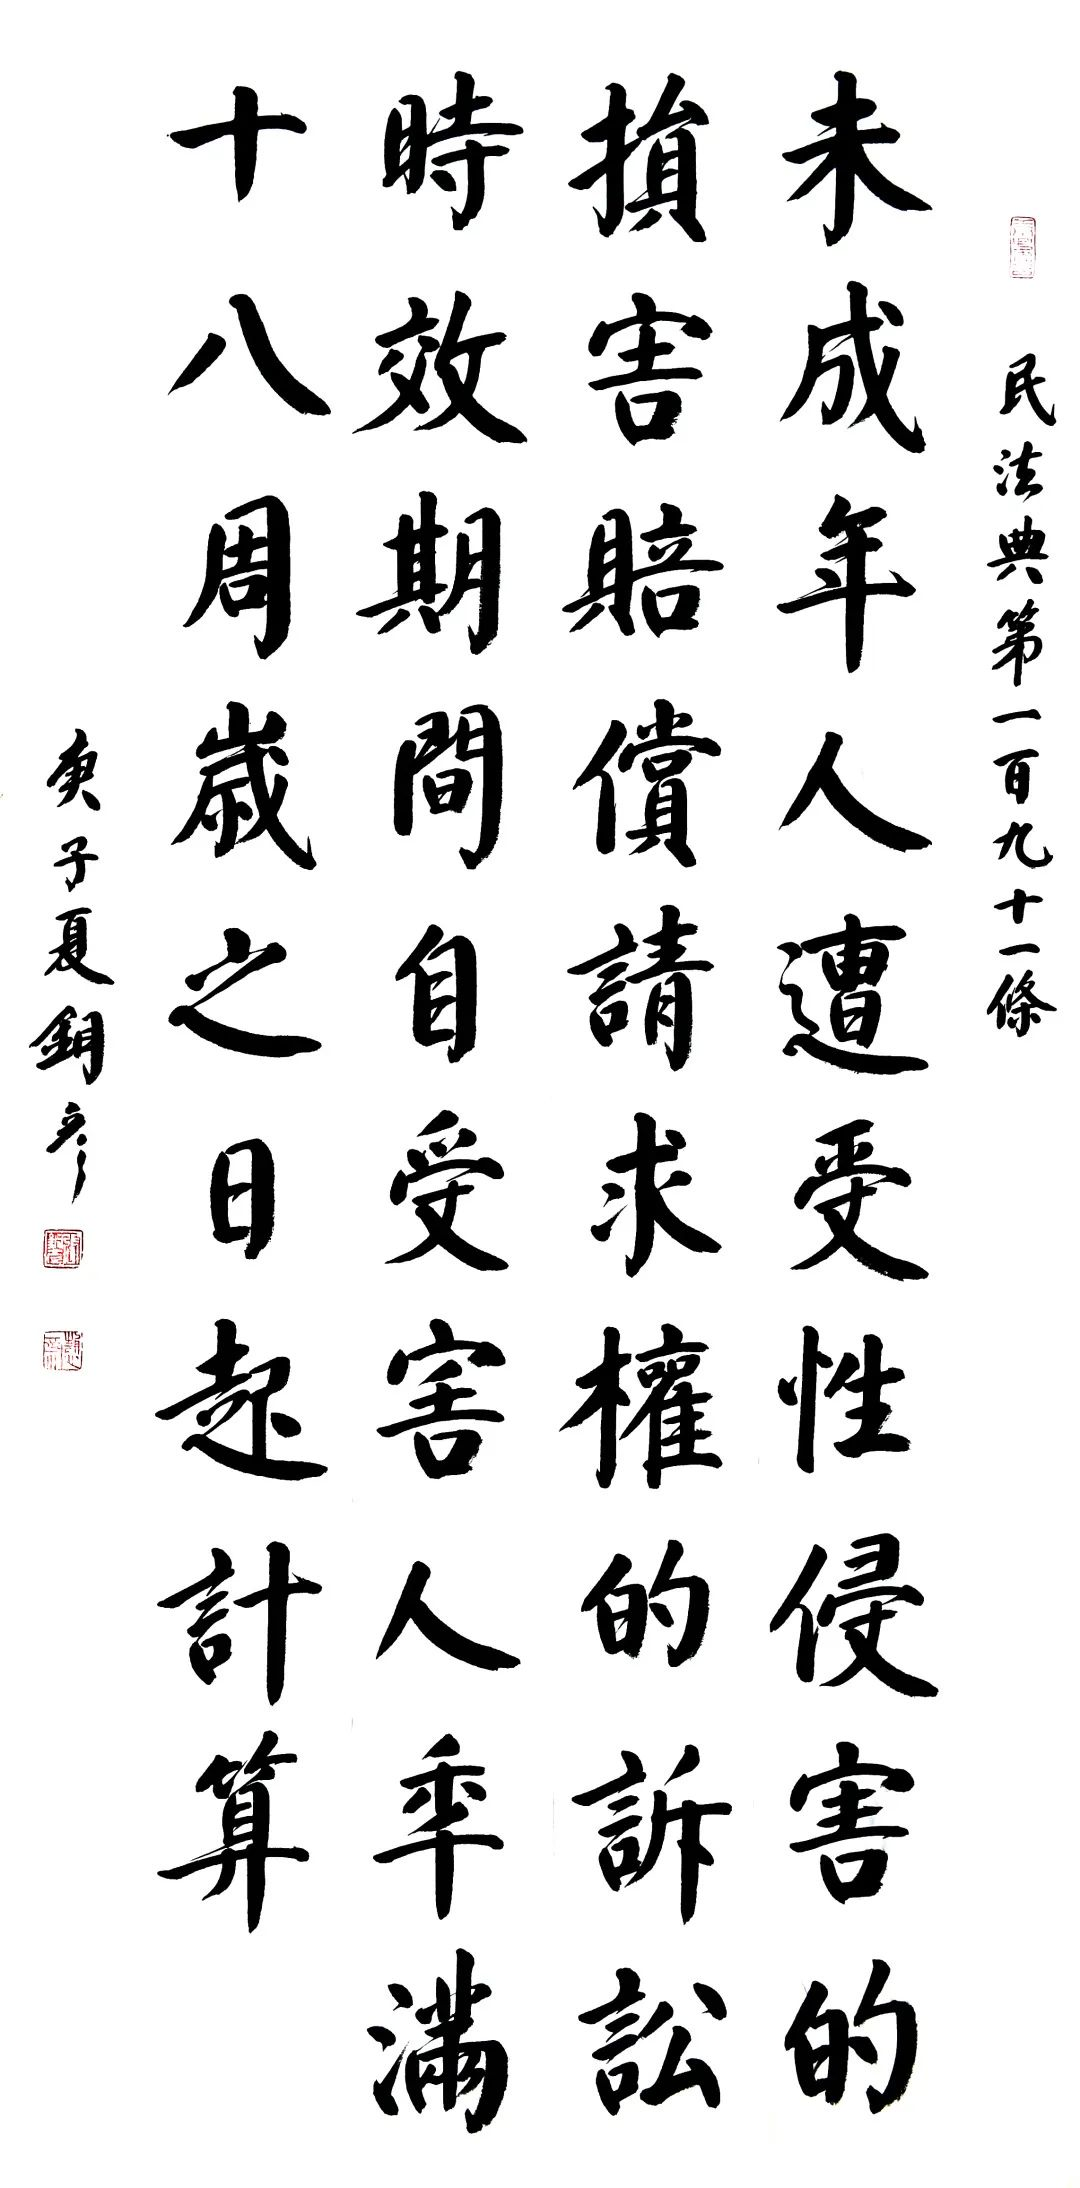 民法典第一百九十一條
未成年人遭受性侵害的
損害賠償請求權的訴訟
時效期間自受害人年滿
十八周歲之日起計算
庚子夏彥